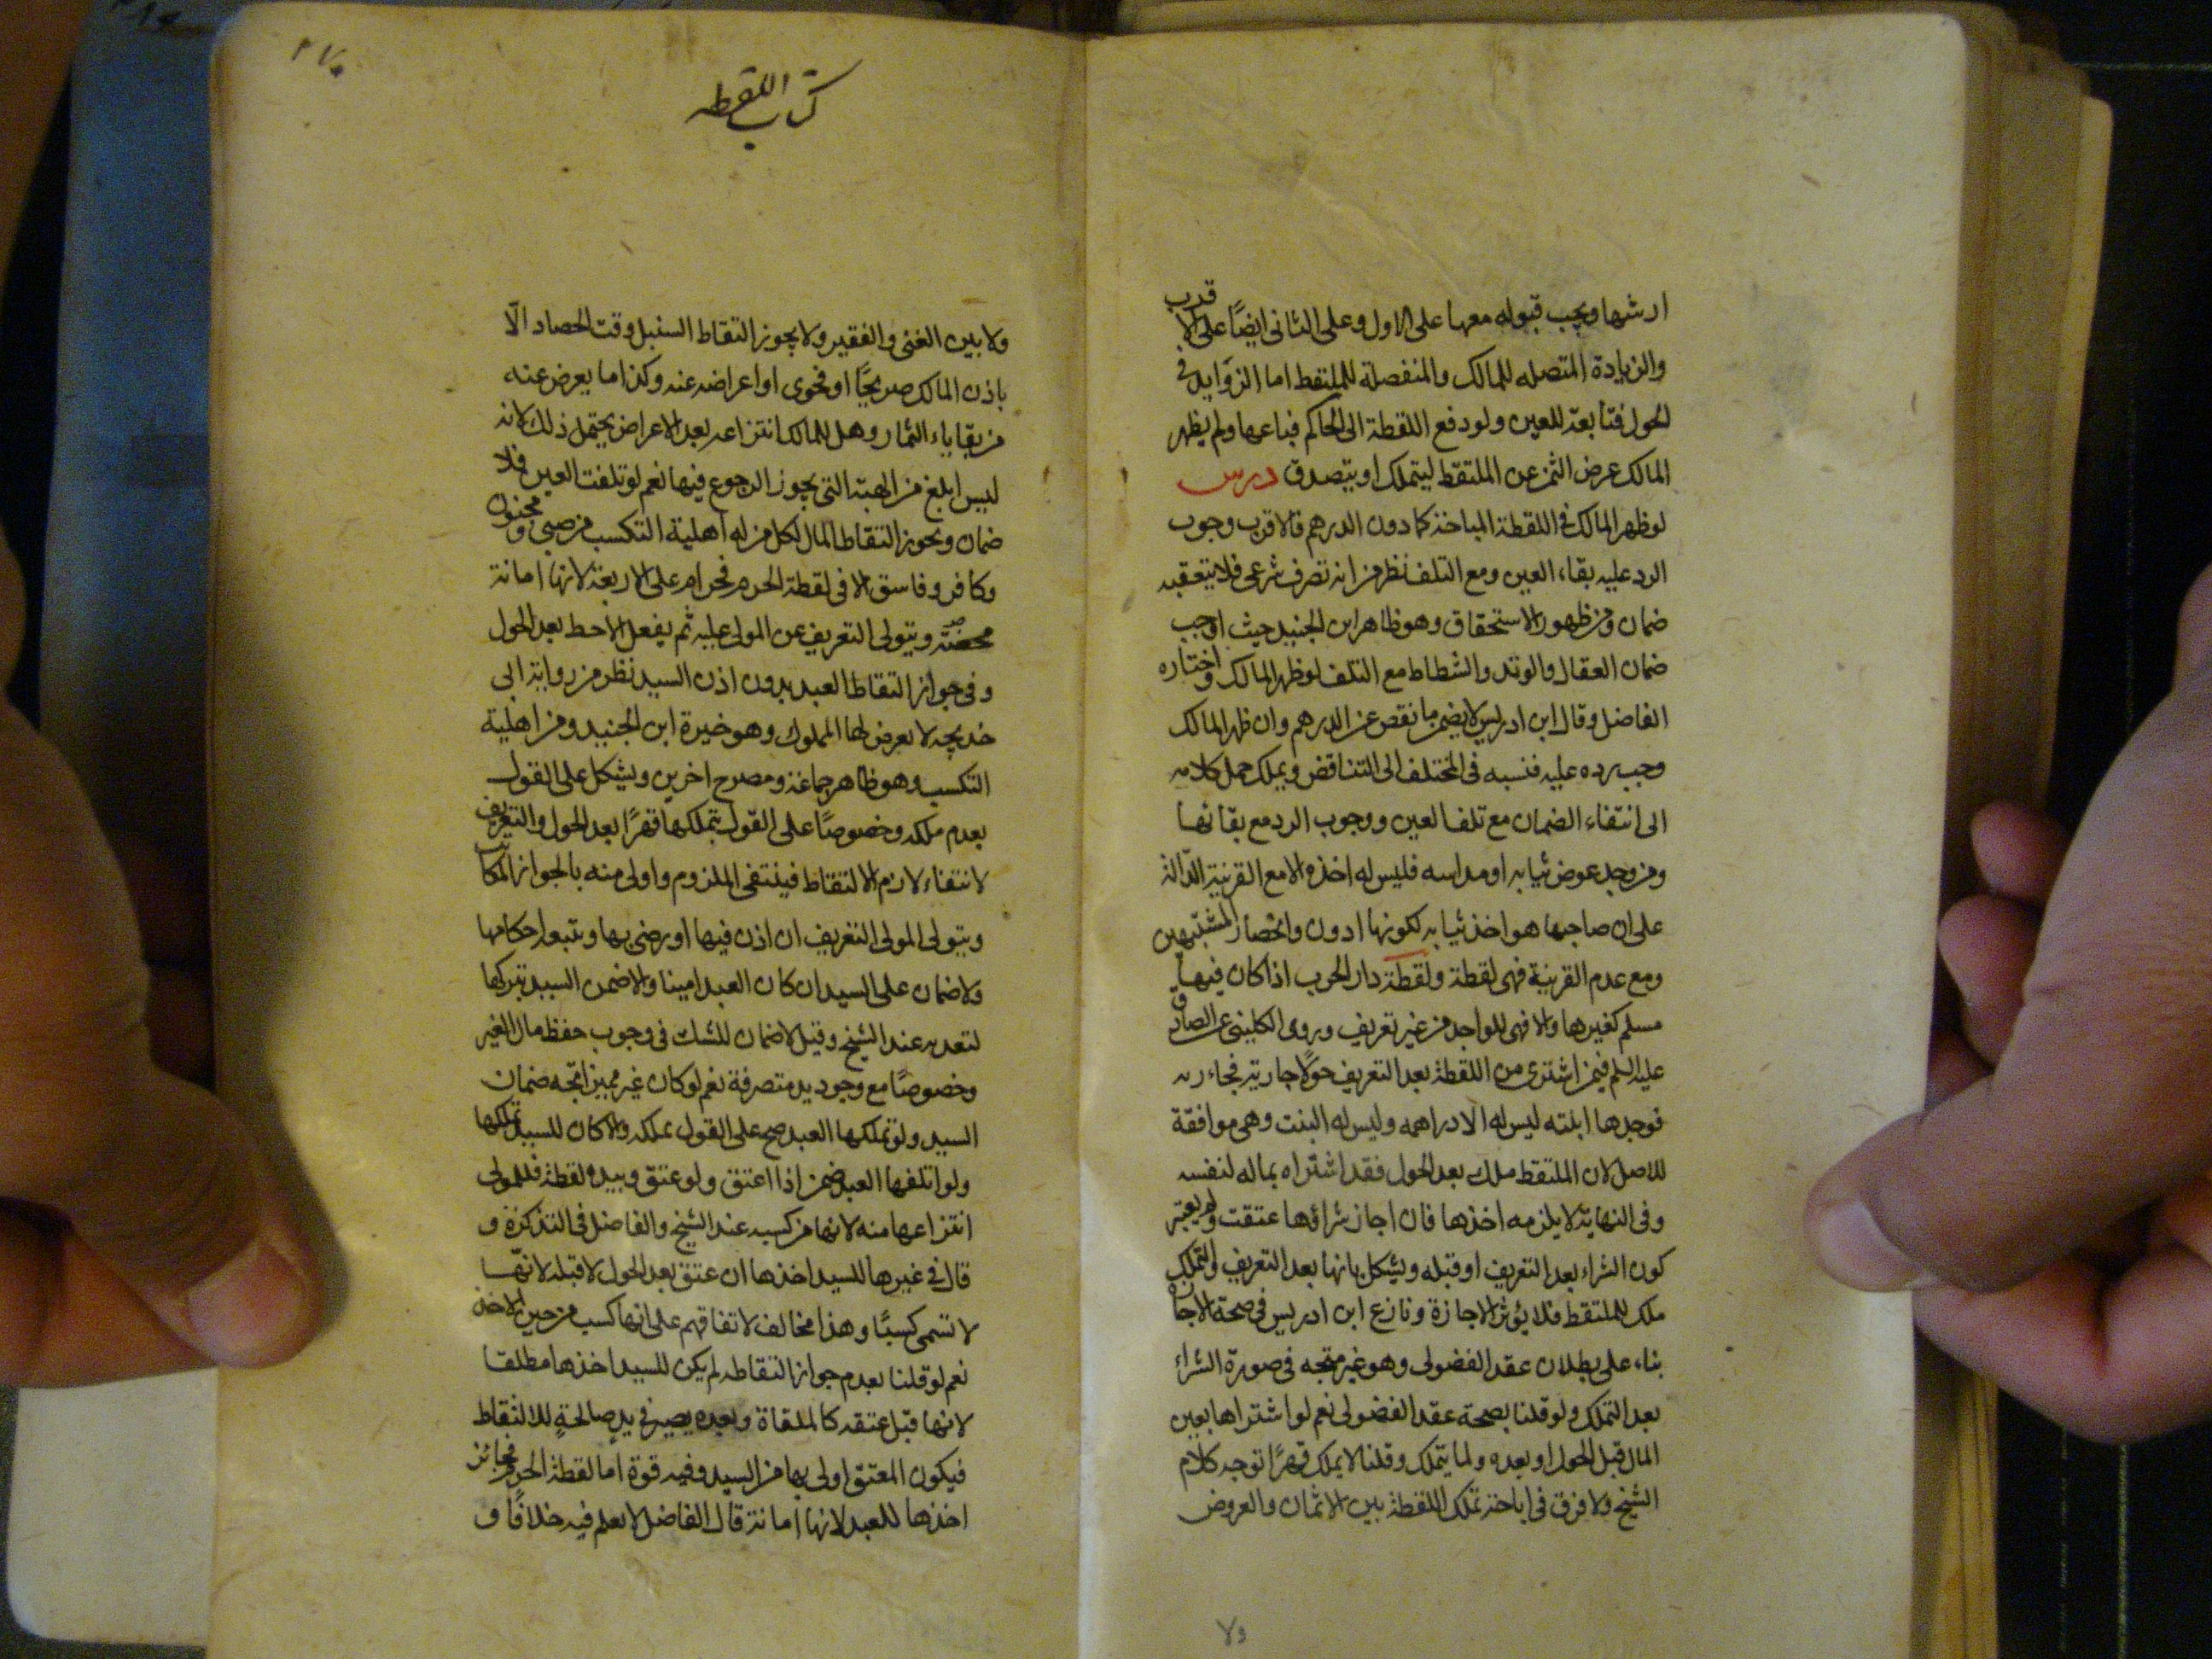 ارشها ويجب قبوله معها على الاول وعلى الثاني ايضا على الاقرب
والزيادة المتصله للمالك والمنفصلة للملتقط اما الزوايد في
الحول فتابعة للعين ولو دفع اللقطة الى الحاكم فباعها ولم يظهر
المالك عرض الثمن عن الملتقط ليتملك او يتصدق درس
لو ظهر المالك في اللقطة المباحة كما دون الدرهم فالاقرب وجوب
الرد عليه بقاء العين ومع التلف نظر من انه تصرف شرعي فلا يتعقبه
ضمان ومن ظهور الاستحقاق وهو ظاهر ابن الجنيد حيث اوجب
ضمان العقال والوتد والشظاظ مع التلف لو ظهر المالك واختاره
الفاضل وقال ابن ادريس لا يضمن ما نقص عن الدرهم وان ظهر المالك
وجب رده عليه فنسبه في المختلف الى التناقض ويمكن حمل كلامه
الى انتفاء الضمان مع تلف العين ووجوب الرد مع بقائها
ومن وجد عوض ثيابه او مداسه فليس له اخذه الا مع القرينة الدالة
على ان صاحبها هو اخذ ثيابه لكونها ادون وانحصار المشتبهين
ومع عدم القرينة فهي لقطة ولقطة دار الحرب اذا كان فيها
مسلم كغيرها والا فهي للواجد من غير تعريف وروى الكليني عن الصادق
عليه السلم فيمن اشترى من اللقطة بعد التعريف حولا جارية فجاء ربه
فوجدها ابنته ليس له الا دراهمه وليس له البنت وهي موافقة
للاصل لان الملتقط ملك بعد الحول فقد اشتراه بماله لنفسه
وفي النهاية لا يلزمه اخذها فان اجاز شراؤها عتقت ولم يعتبر
كون الشراء بعد التعريف او قبله ويشكل بانها بعد التعريف والتملك
ملك للملتقط فلا يؤثر الاجازة ونازع ابن ادريس في صحة الاجازة
بناء على بطلان عقد الفضولي وهو غير متجه في صورة الشراء
بعد التملك ولو قلنا بصحة عقد الفضولي نعم لو اشتراها بعين
المال قبل الحول او بعده ولما يتملك وقلنا لا يملك قهرا توجه كلام
الشيخ ولا فرق في اباحة تملك اللقطة بين الاثمان والعروض
ولا
٢٧٠
كتاب اللقطه
ولا بين الغنى والفقير ولا يجوز التقاط السنبل وقت الحصاد الّا
باذن المالك صريحًا او فحوى او اعراضه عنه وكذا ما يعرض عنه
من بقاياء الثمار وهل للمالك انتزاعه بعد الاعراض يحتمل ذلك لانه
ليس ابلغ من الهبة التي يجوز الرجوع فيها نعم لو تلفت العين فلا
ضمان ويجوز التقاط المال لكل من له اهلية التكسب من صبي ومجنون
وكافر وفاسق الا في لقطة الحرم فحرام على الاربعة لانها امانة
محضة ويتولى التعريف عن المولى عليه ثم يفعل الاحظ بعد الحول
وفي جواز التقاط العبد بدون اذن السيد نظر من رواية ابي
خديجه لا يعرض لها المملوك وهو خيرة ابن الجنيد ومن اهلية
التكسب وهو ظاهر جماعة ومصرح اخرين ويشكل على القول
بعدم ملكه وخصوصًا على القول بتملكها قهرًا بعد الحول والتعريف
لانتفاء لازم الالتقاط فينتفي الملزوم واولى منه بالجواز المكاتب
ويتولى المولى التعريف ان اذن فيها او رضي بها ويتبعه احكامها
ولا ضمان على السيد ان كان العبد امينا والا ضمن السيد بتركها
لتعديه عند الشيخ وقيل لا ضمان للشك في وجوب حفظ مال الغير
وخصوصًا مع وجود يد متصرفة نعم لو كان غير مميز اتجه ضمان
السيد ولو تملكها العبد صح على القول بملكه والا كان للسيد تملكها
ولو اتلفها العبد ضمن اذا اعتق ولو عتق وبيده لقطة فللمولى
انتزاعها منه لانها من كسبه عند الشيخ والفاضل في التذكرة و
قال في غيرها للسيد اخذها ان عتق بعد الحول لا قبله لانها
لا تسمى كسبًا وهذا مخالف لاتفاقهم على انها كسب من حين الاخذ
نعم لو قلنا بعدم جواز التقاطه لم يكن للسيد اخذها مطلقا
لانها قبل عتقه كالملقاة وبعده يصير في يد صالحة للالتقاط
فيكون المعتق اولى بها من السيد وفيه قوة اما لقطة الحرم فجائز
اخذها للعبد لانها امانة قال الفاضل لا نعلم فيه خلافًا و